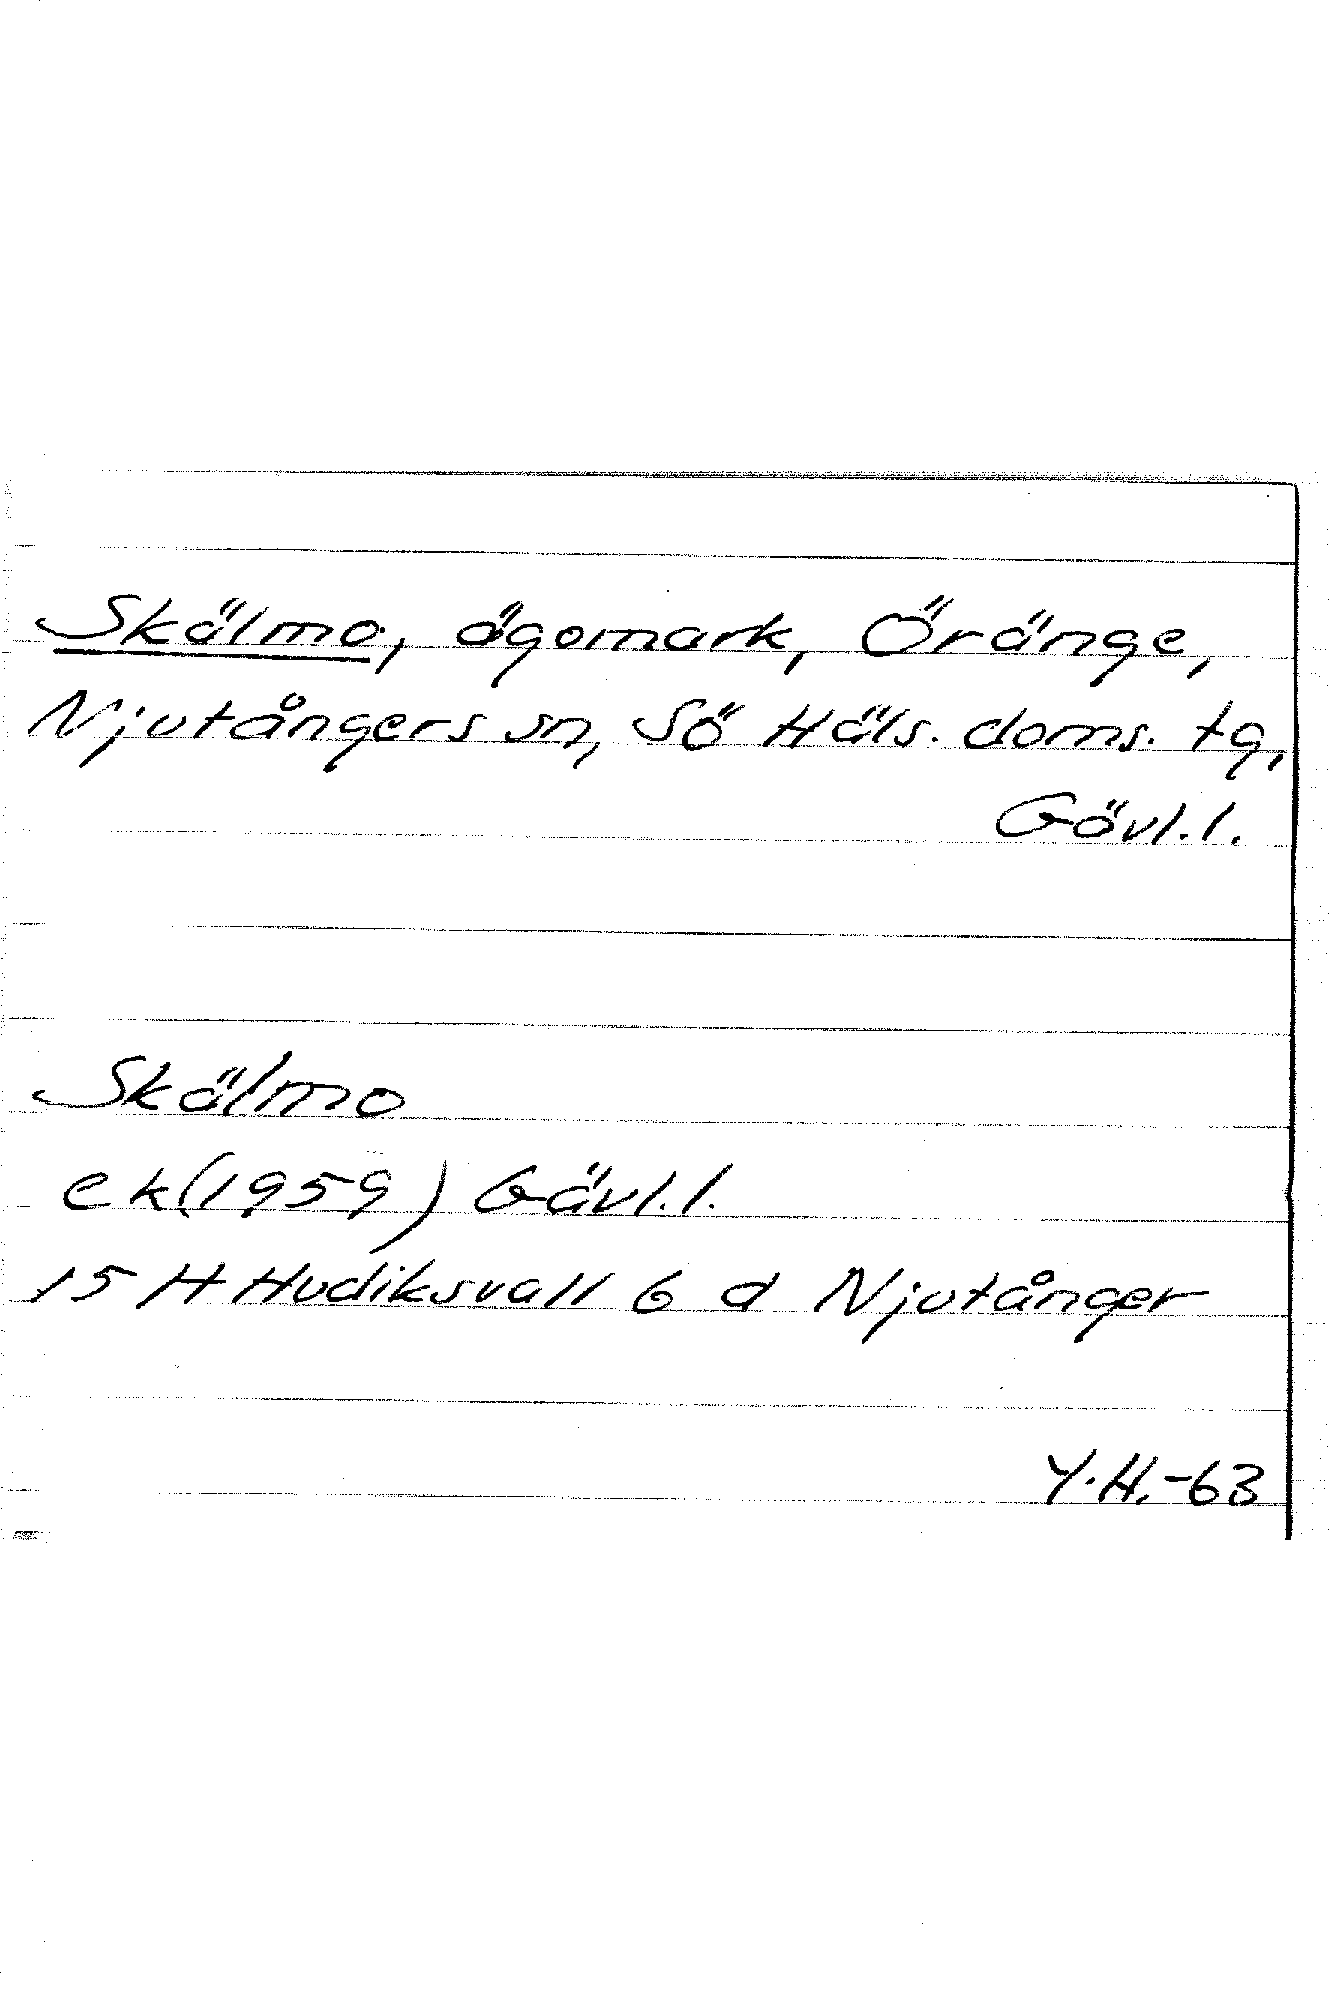 Skälmo, ägomark, Öränge,
Njutångers sn, Sö Häls. doms. tg,
Gävl. l.
Skälmo
ek (1959) Gävl. l.
15 H Hudiksvall 6 d Njutånger
Y. H. -63